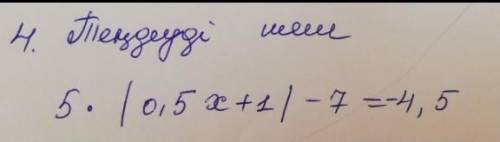 4. Теңдеуді шеш
5 · |0,5x+1| - 7 = -4,5